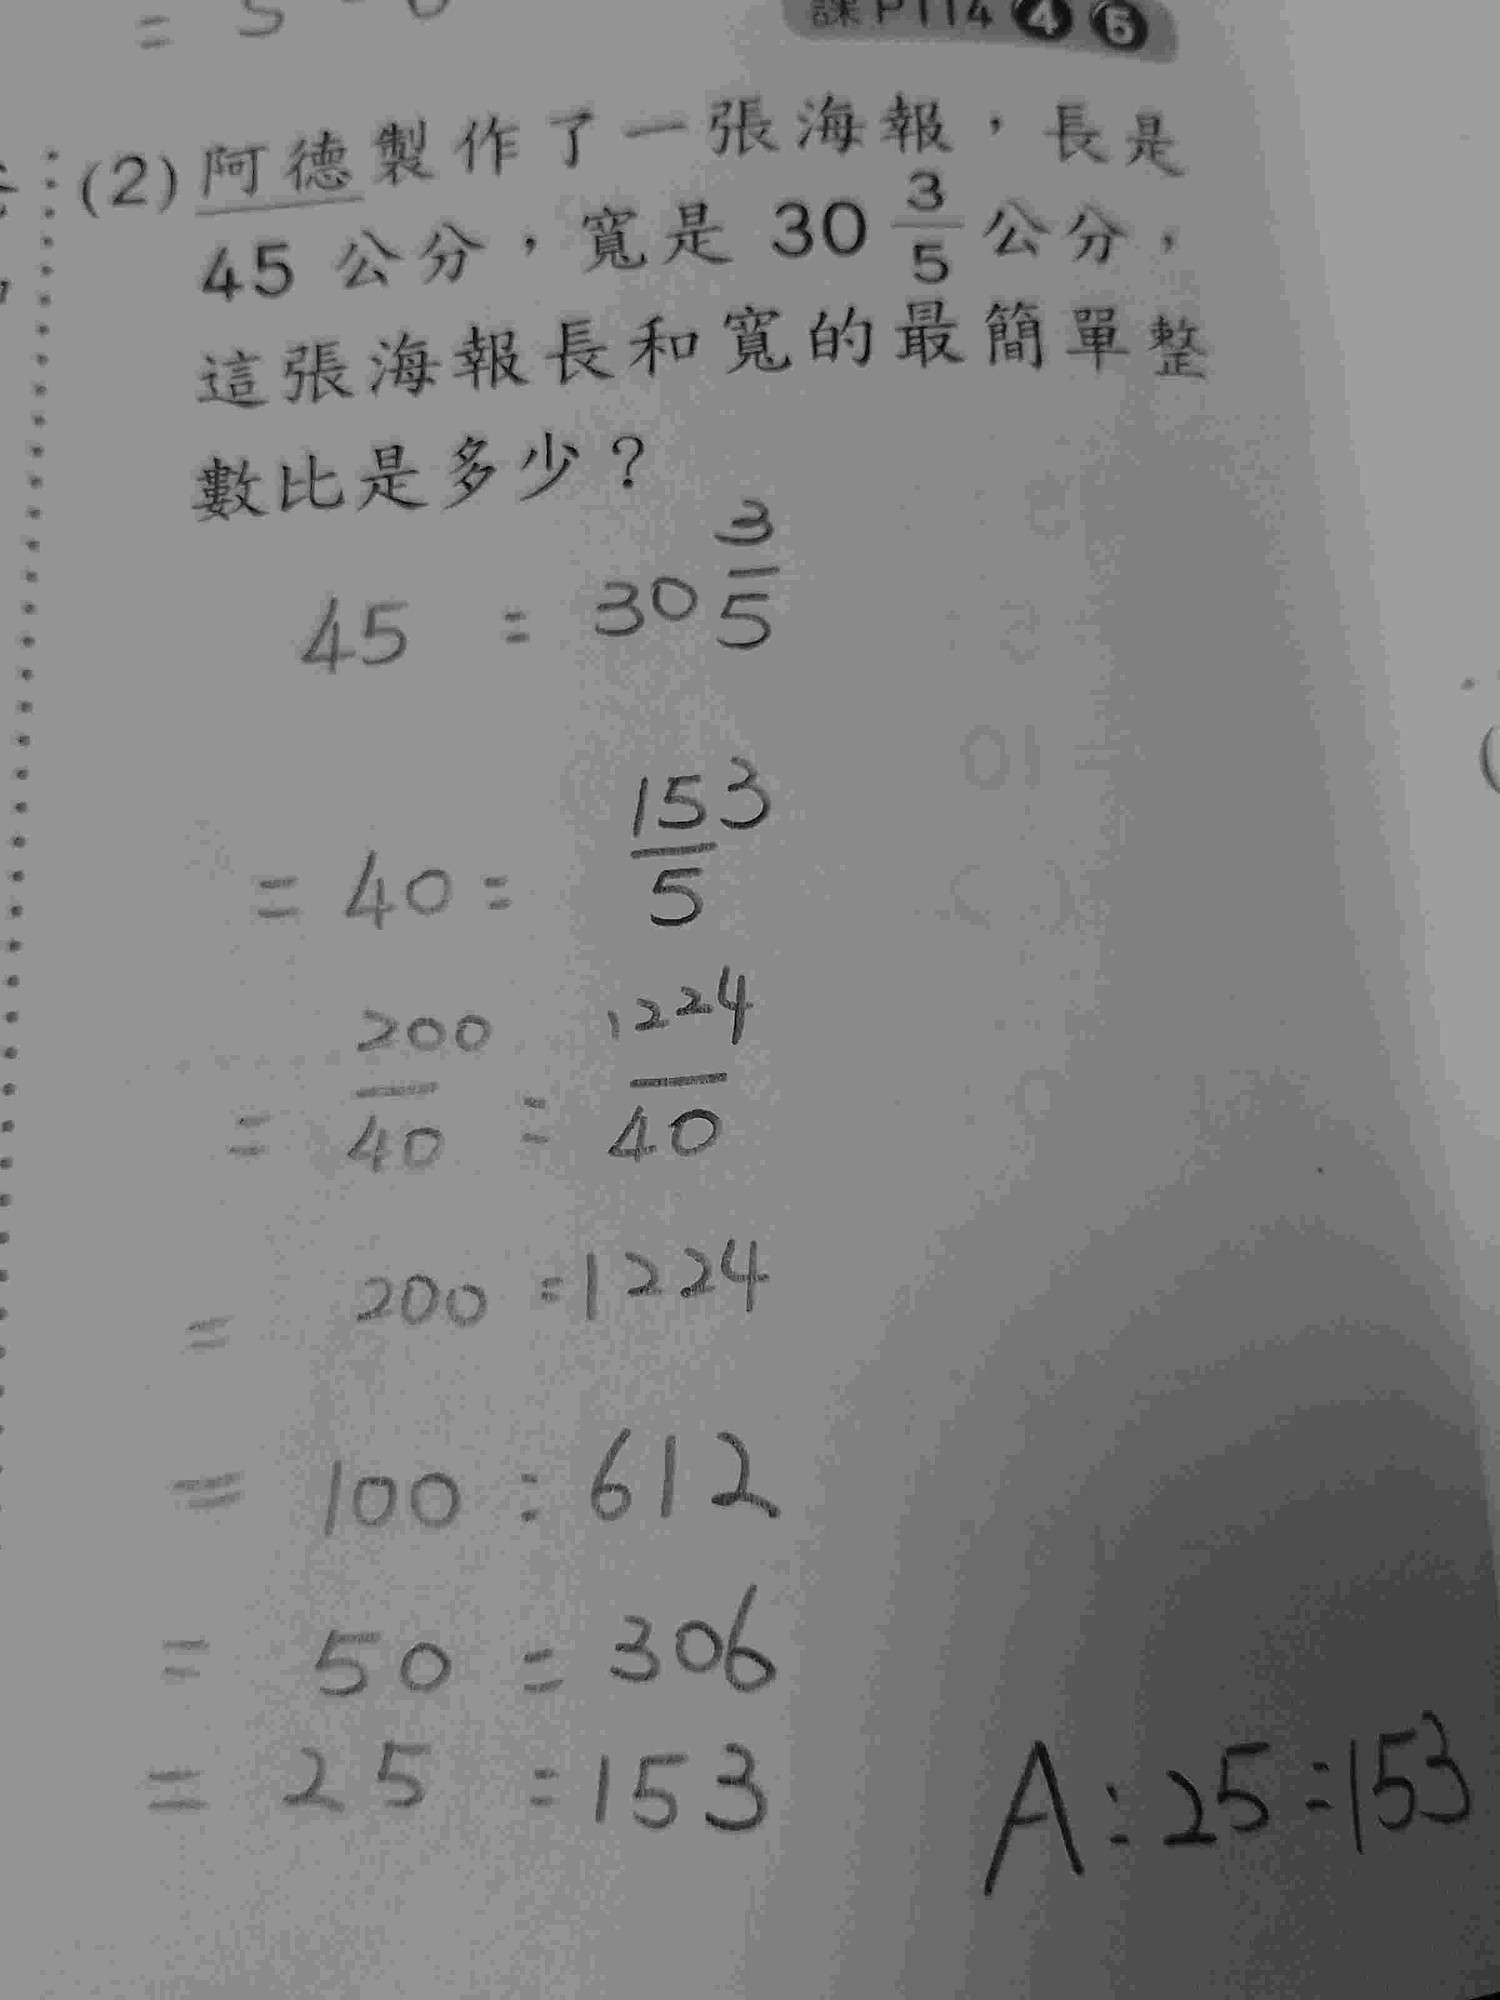 課P114 4 5
(2) 阿德製作了一張海報，長是
45 公分，寬是 30 3/5 公分，
這張海報長和寬的最簡單整
數比是多少？
45 : 30 3/5
= 40 : 153/5
= 200/40 : 1224/40
= 200 : 1224
= 100 : 612
= 50 : 306
= 25 : 153
A : 25 : 153